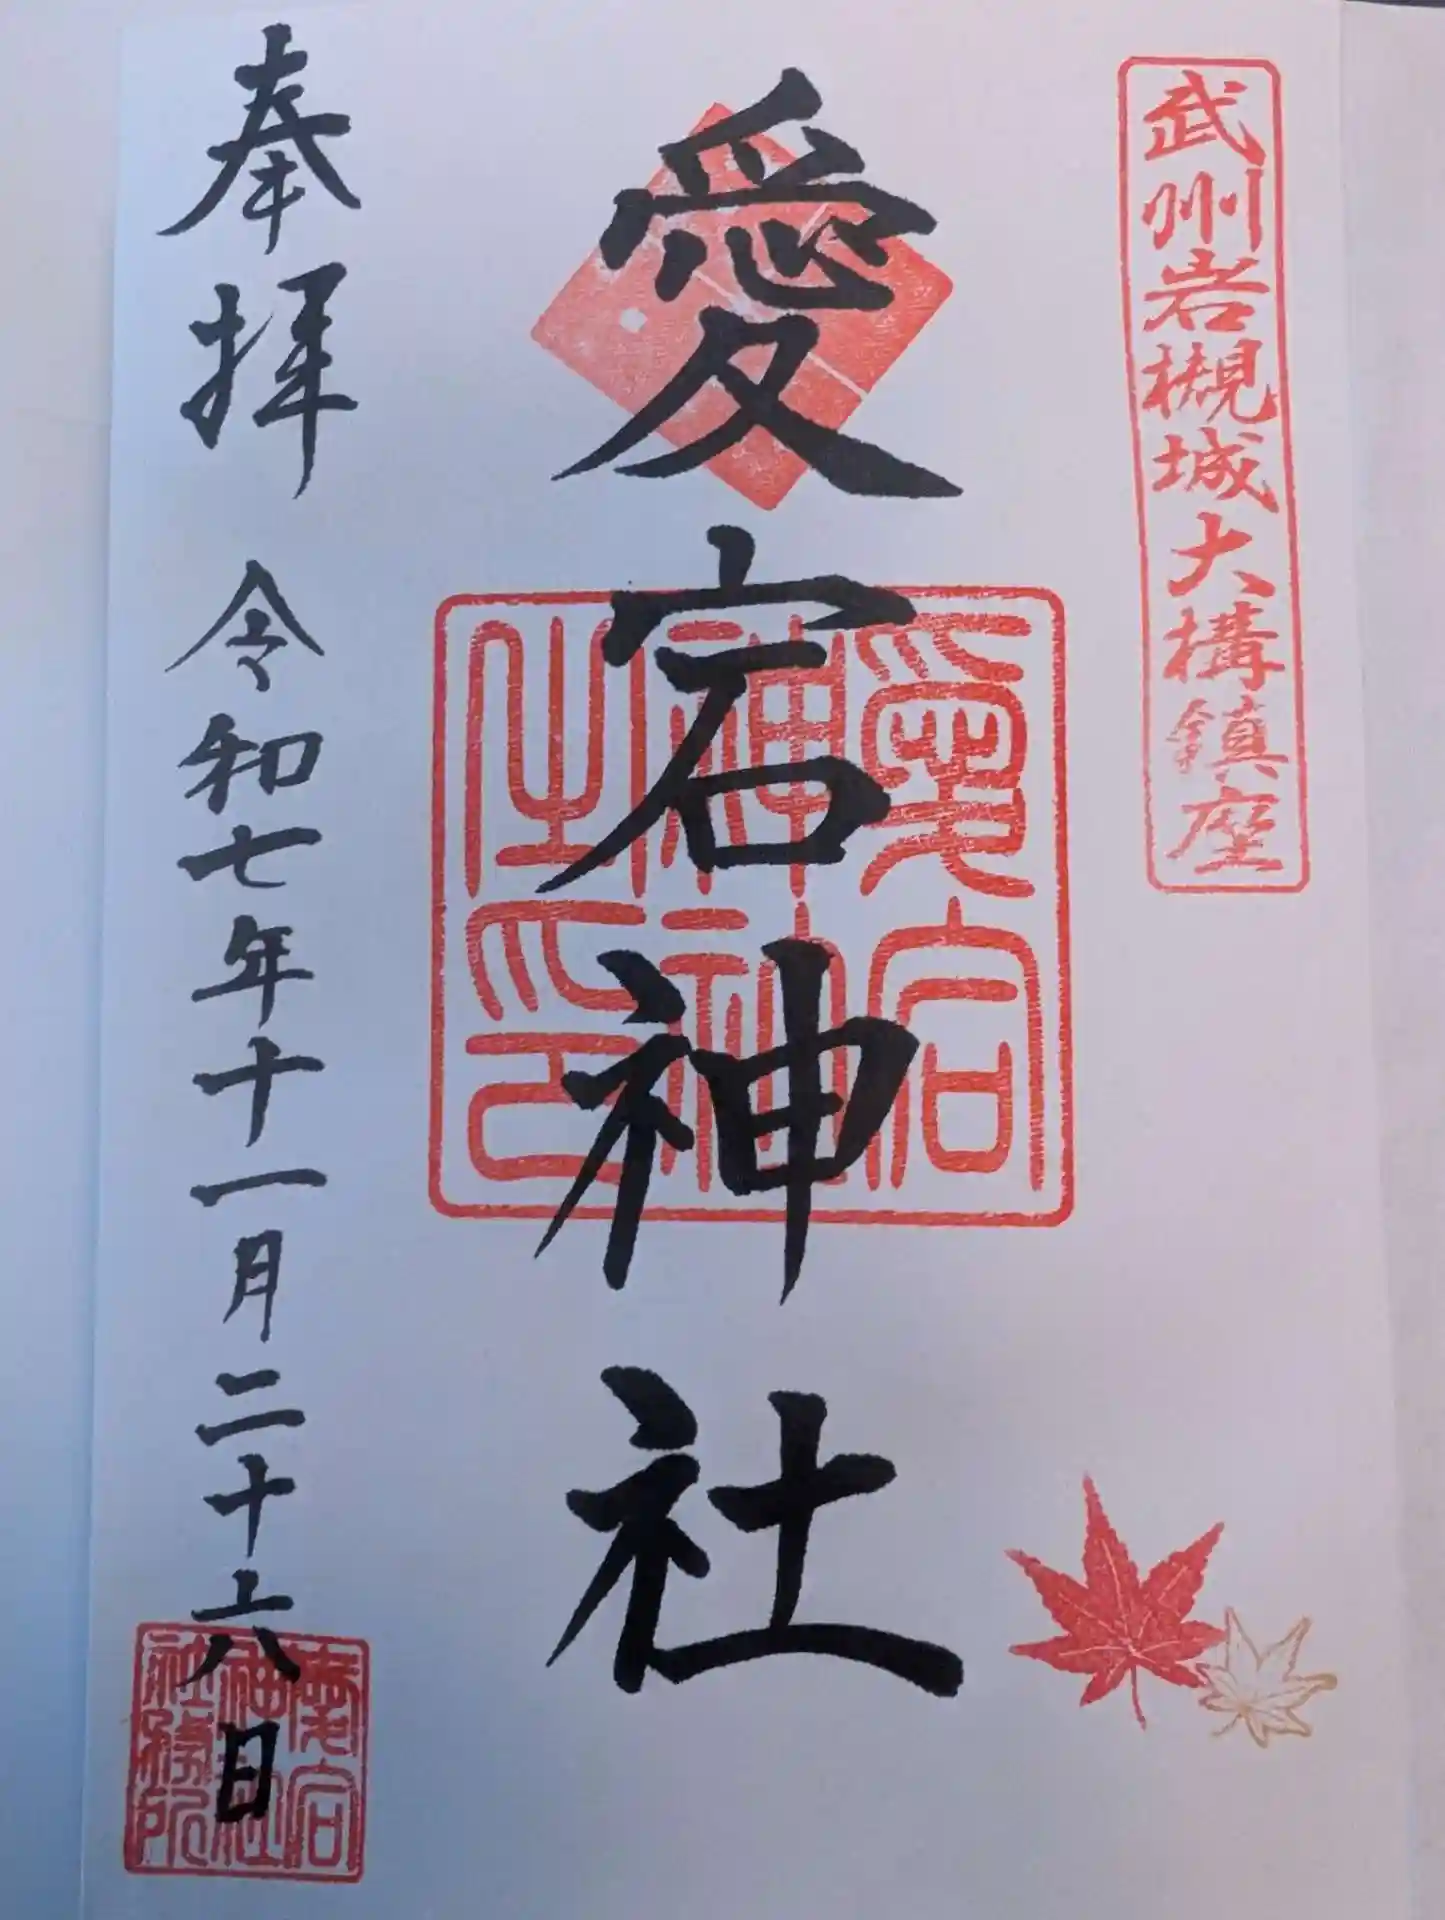 武州岩槻城大構鎮座
愛宕神社
愛宕
神社
之印
奉拝
令和七年十一月二十六日
愛宕
神社
社務所